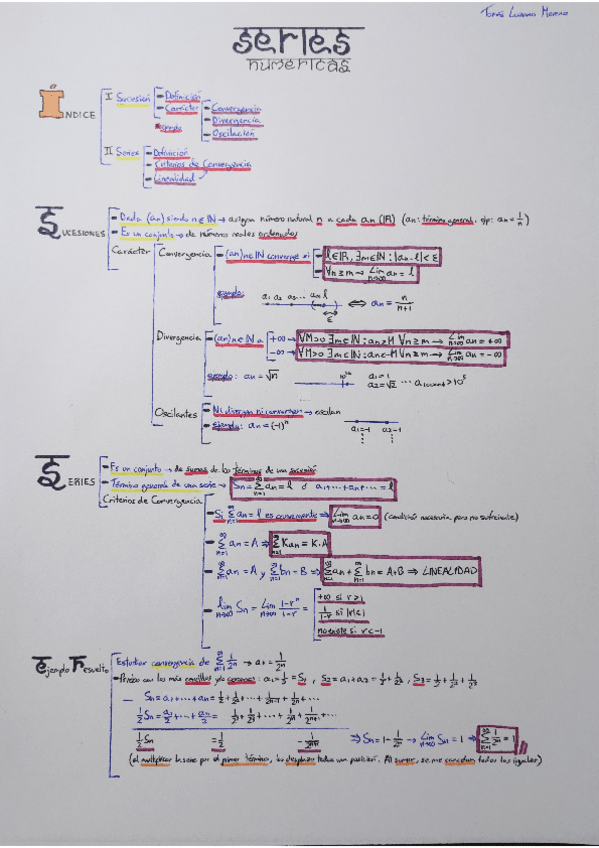 Tomás Lozano Moreno
Series
numéricas
ÍNDICE
I Sucesión
- Definición
- Carácter
- Convergencia
- Divergencia
- Oscilación
- Ejemplo
II Series
- Definición
- Criterios de Convergencia
- Linealidad
SUCESIONES
- Dada (an) siendo n∈ℕ → asigna número natural n a cada an (ℝ) (an: término general, ejp: an = 1/n)
- Es un conjunto → de números reales ordenados
Carácter
Convergencia
- (an)n∈ℕ converge si
- l∈ℝ, ∃m∈ℕ : |an-l| < ε
- ∀n≥m → lim n→∞ an = l
ejemplo:
a1 a2 a3... an l
ε
⟺ an = n/n+1
Divergencia
- (an)n∈ℕ a
+∞ → ∀M>0 ∃m∈ℕ : an>M ∀n≥m → lim n→∞ an = +∞
-∞ → ∀M>0 ∃m∈ℕ : an<-M ∀n≥m → lim n→∞ an = -∞
ejemplo: an = √n
a1 = 1
a2 = √2
Oscilantes
- Ni divergen ni convergen → oscilan
- ejemplo: an = (-1)ⁿ
a1=-1 a2=1
SERIES
- Es un conjunto → de sumas de los términos de una sucesión
- Término general de una serie → Sn = ∑ n=1 ∞ an = l ó a1+...+an+... = l
Criterios de Convergencia
- Si ∑ n=1 ∞ an = l es convergente ⇒ lim n→∞ an = 0 (condición necesaria pero no suficiente)
- ∑ n=1 ∞ an = A ⇒ ∑ n=1 ∞ K an = K·A
- ∑ n=1 ∞ an = A y ∑ n=1 ∞ bn = B ⇒ ∑ n=1 ∞ an + ∑ n=1 ∞ bn = A+B ⇒ LINEALIDAD
- lim n→∞ Sn = lim n→∞ 1-rⁿ/1-r =
+∞ si r>1
1/1-r si |r|<1
no existe si r<-1
Ejemplo Resuelto
Estudiar convergencia de ∑ n=1 ∞ 1/2ⁿ → an = 1/2ⁿ
: a1 = 1/2 = S1, S2 = a1+a2 = 1/2 + 1/2², S3 = 1/2 + 1/2² + 1/2³
- Sn = a1+...+an = 1/2 + 1/2² + ... + 1/2ⁿ⁻¹ + 1/2ⁿ + ...
1/2 Sn = a1/2 + ... + an/2 = 1/2² + 1/2³ + ... + 1/2ⁿ + 1/2ⁿ⁺¹ ...
1/2 Sn = 1/2 - 1/2ⁿ⁺¹ ⇒ Sn = 1 - 1/2ⁿ → lim n→∞ Sn = 1 ⇒ ∑ n=1 ∞ 1/2ⁿ = 1
(al multiplicar la serie por el primer término, los desplazo todos una posición. Al sumar, se me cancelan todos los iguales)